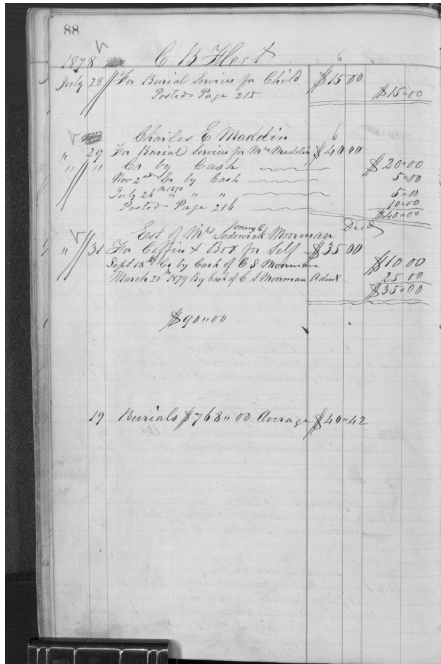 88
1878 C B Host 6
July 28 For Burial Services for Child $15 00
Posted Page 215 $15"00
Charles E Maddin 6
" 29 For Burial Services for Mrs Maddin $40 00
" " Cr by Cash $20"00
Nov 2nd Cr by Cash 5"00
July 26th 1879 " " " 5"00
Posted Page 216 10"00
$40"00
Est of Mrs Lodowick Moorman Decd
" 31 For Coffin & Box for Self $35 00
Sept 18th Cr by Cash of C S Moorman $10 00
March 21st 1879 By Cash of C S Moorman Admr 25 00
$35"00
$90"00
19 Burials $768"00 Average $40"42